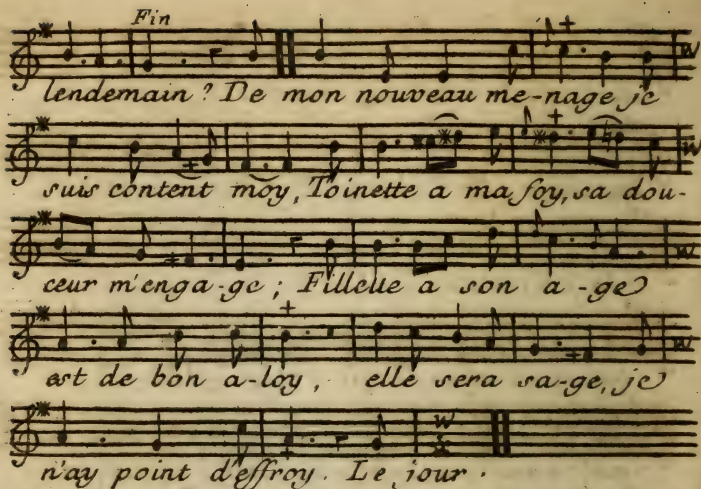 Fin
lendemain ? De mon nouveau me-nage je
suis content moy, Toinette a ma foy, sa dou-
ceur m'enga-ge ; Fillette a son a-ge
est de bon a-loy, elle sera sa-ge, je
n'ay point d'effroy. Le jour.